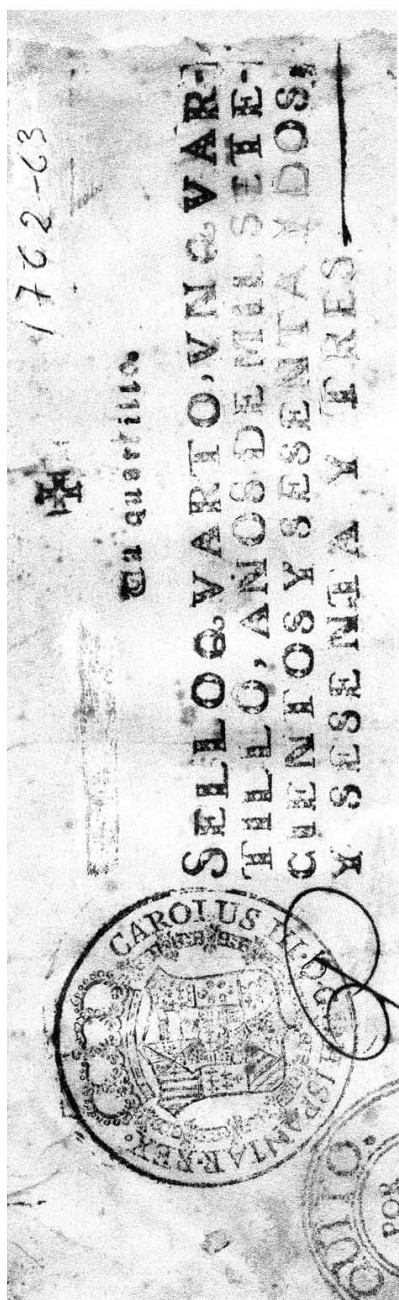 1762-63
Un quartillo.
SELLO QVARTO, VN QVAR-
TILLO, AÑOS DE MIL SETE-
CIENTOS Y SESENTA Y DOS,
Y SESENTA Y TRES.
CAROLUS III·D·G·HISPANIAR·REX·
QUITO.
POR